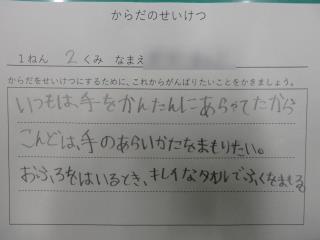 からだのせいけつ
1ねん 2くみ なまえ
からだをせいけつにするために、これからがんばりたいことをかきましょう。
いつもは、手をかんたんにあらってたから
こんどは、手のあらいかたをまもりたい。
おふろをはいるとき、キレイなタオルでふくをまもる。